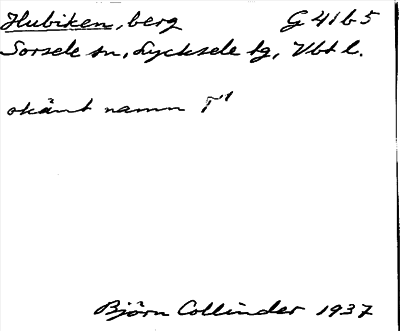 Hubiken, berg G 41 b 5
Sorsele sn, Lycksele tg, Vbtl.
okänt namn T¹
Björn Collinder 1937